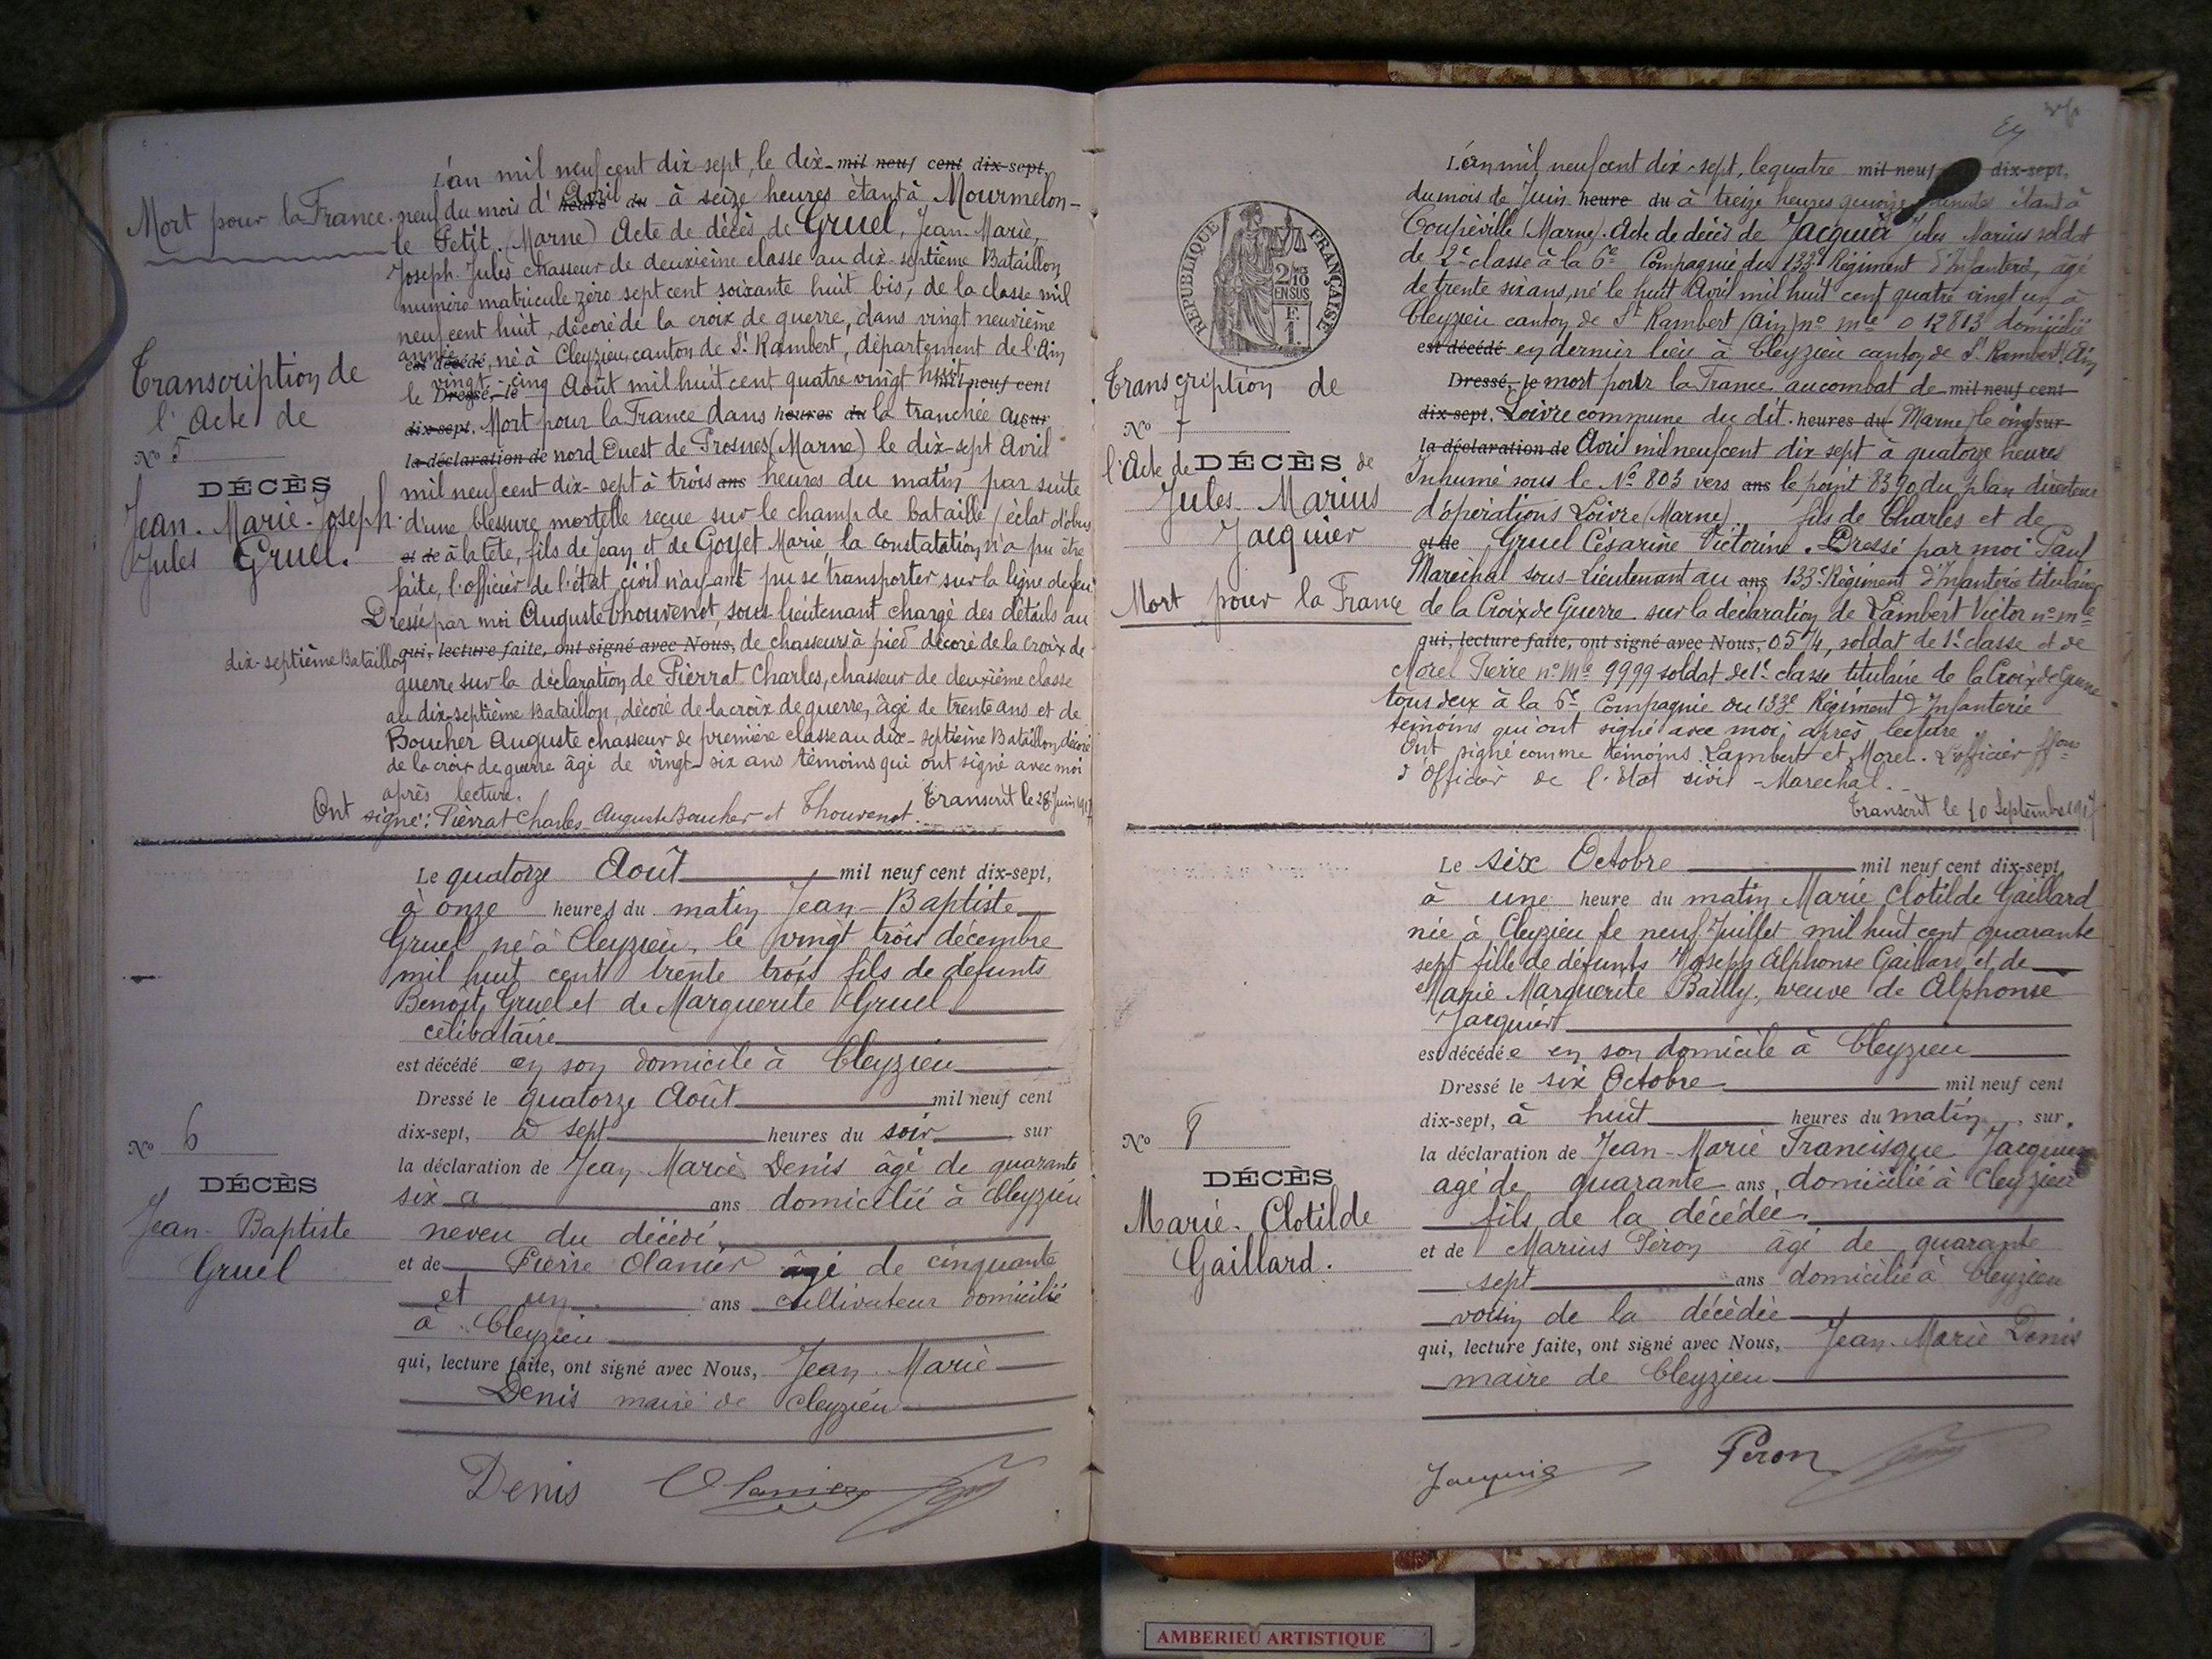 Mort pour la France.
Transcription de
l'Acte de
No 5
DÉCÈS
Jean-Marie-Joseph-
Jules Gruel.
L'an mil neuf cent dix sept, le dix- mil neuf cent dix-sept,
neuf du mois d'Avril heure du à seize heures étant à Mourmelon-
le Petit. (Marne) Acte de décès de Gruel, Jean-Marie,
Joseph-Jules chasseur de deuxième classe au dix-septième Bataillon
numéro matricule zéro sept cent soixante huit bis, de la classe mil
neuf cent huit, décoré de la croix de guerre, dans vingt neuvième
année est décédé, né à Cleyzieu, canton de St Rambert, département de l'Ain
le Dressé, le vingt-cinq Août mil huit cent quatre vingt huit mil neuf cent
dix-sept. Mort pour la France dans heures du la tranchée au sur
la déclaration de nord Ouest de Prosnes (Marne) le dix-sept Avril
mil neuf cent dix-sept à trois ans heures du matin par suite
d'une blessure mortelle reçue sur le champ de bataille (éclat d'obus
et de à la tête, fils de Jean et de Goyet Marie, la constatation n'a pu être
faite, l'officier de l'état civil n'ayant pu se transporter sur la ligne de feu
Dressé par moi Auguste Thouvenot, sous-lieutenant chargé des détails au
dix-septième Bataillon qui, lecture faite, ont signé avec Nous, de chasseurs à pied décoré de la Croix de
guerre sur la déclaration de Pierrat Charles, chasseur de deuxième classe
au dix-septième Bataillon, décoré de la croix de guerre, âgé de trente ans et de
Boucher Auguste chasseur de première classe au dix-septième Bataillon, décoré
de la croix de guerre âgé de vingt-six ans témoins qui ont signé avec moi
après lecture. Transcrit le 28 Juin 1917
Ont signé: Pierrat Charles Auguste Boucher et Thouvenot.
No 6
DÉCÈS
Jean-Baptiste
Gruel
Le quatorze Août mil neuf cent dix-sept,
à onze heures du matin Jean-Baptiste
Gruel né à Cleyzieu, le vingt trois décembre
mil huit cent trente trois fils de défunts
Benoit Gruel et de Marguerite Gruel
célibataire
est décédé en son domicile à Cleyzieu
Dressé le quatorze Août mil neuf cent
dix-sept, à sept heures du soir sur
la déclaration de Jean-Marie Denis âgé de quarante
six a ans domicilié à Cleyzieu
neveu du décédé,
et de Pierre Olanier âgé de cinquante
et un ans cultivateur domicilié
à Cleyzieu
qui, lecture faite, ont signé avec Nous, Jean-Marie
Denis maire de Cleyzieu
Denis Olanier
RÉPUBLIQUE FRANÇAISE
2/10
EN SUS
F.
1.
Transcription de
No 7
l'Acte de DÉCÈS de
Jules Marius
Jacquier
Mort pour la France
L'an mil neuf cent dix-sept, le quatre mil neuf dix-sept,
du mois de Juin heure du à treize heures quinze minutes étant à
Coupéville (Marne). Acte de décès de Jacquier Jules Marius soldat
de 2e classe à la 6e Compagnie du 133e Régiment d'Infanterie, âgé
de trente six ans, né le huit Avril mil huit cent quatre vingt un à
Cleyzieu canton de St Rambert (Ain) no me 012813 domicilié
est décédé en dernier lieu à Cleyzieu canton de St Rambert Ain
Dressé, le mort pour la France au combat de mil neuf cent
dix-sept. Loivre commune du dit. heures du (Marne) le vingt sur
la déclaration de Avril mil neuf cent dix sept à quatorze heures
Inhumé sous le No 803 vers ans le point 8390 du plan directeur
d'opérations Loivre (Marne) fils de Charles et de
et de Gruel Césarine Victorine. Dressé par moi Paul
Marechal sous-Lieutenant au ans 133e Régiment d'Infanterie titulaire
de la Croix de Guerre sur la déclaration de Lambert Victor no me
qui, lecture faite, ont signé avec Nous, 0574, soldat de 1e classe et de
Morel Pierre no Me 9999 soldat de 1e classe titulaire de la Croix de Guerre
tous deux à la 6e Compagnie du 133e Régiment d'Infanterie
témoins qui ont signé avec moi après lecture
Ont signé comme témoins Lambert et Morel. L'officier ffons
d'Officier de l'Etat civil - Marechal.
Transcrit le 10 Septembre 1917
No 8
DÉCÈS
Marie-Clotilde
Gaillard.
Le six Octobre mil neuf cent dix-sept
à une heure du matin Marie Clotilde Gaillard
née à Cleyzieu le neuf Juillet mil huit cent quarante
sept fille de défunts Joseph Alphonse Gaillard et de
Marie Marguerite Bailly, veuve de Alphonse
Jacquier
est décédée en son domicile à Cleyzieu
Dressé le six Octobre mil neuf cent
dix-sept, à huit heures du matin, sur
la déclaration de Jean-Marie Francisque Jacquier
âgé de quarante ans, domicilié à Cleyzieu
fils de la décédée,
et de Marius Peron âgé de quarante
sept ans domicilié à Cleyzieu
voisin de la décédée
qui, lecture faite, ont signé avec Nous, Jean-Marie Denis
maire de Cleyzieu
Jacquier Peron
AMBERIEU ARTISTIQUE